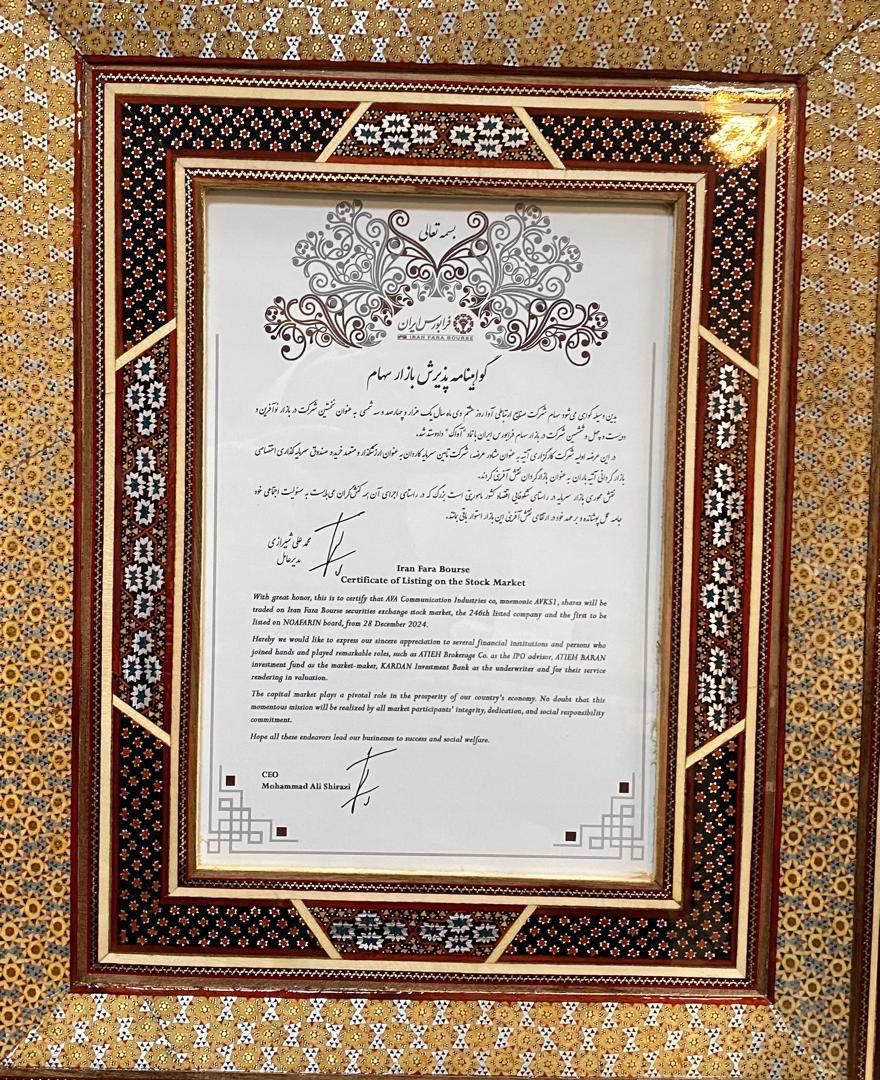 بسمه تعالی
فرابورس ایران
IRAN FARA BOURSE
گواهینامه پذیرش بازار سهام
بدین وسیله گواهی می‌شود سهام شرکت صنایع ارتباطی آوا روز هشتم دی ماه سال یک هزار و چهارصد و سه شمسی به عنوان نخستین شرکت در بازار نوآفرین و
دویست و چهل و ششمین شرکت در بازار سهام فرابورس ایران با نماد "آواک" داد و ستد شد.
در این عرضه اولیه شرکت کارگزاری آتیه به عنوان مشاور عرضه، شرکت تأمین سرمایه کاردان به عنوان ارزشگذار و متعهد خرید و صندوق سرمایه گذاری اختصاصی
بازارگردانی آتیه باران به عنوان بازارگردان نقش آفرینی کردند.
نقش محوری بازار سرمایه در راستای شکوفایی اقتصاد کشور ماموریتی است بزرگ که در راستای اجرای آن همه کنش‌گران می‌بایست به مسئولیت اجتماعی خود
جامه عمل پوشانده و بر عهد خود در ارتقای نقش آفرینی این بازار استوار باقی بمانند.
محمد علی شیرازی
مدیرعامل
Iran Fara Bourse
Certificate of Listing on the Stock Market
With great honor, this is to certify that AVA Communication Industries co, mnemonic AVKS1, shares will be
traded on Iran Fara Bourse securities exchange stock market, the 246th listed company and the first to be
listed on NOAFARIN board, from 28 December 2024.
Hereby we would like to express our sincere appreciation to several financial institutions and persons who
joined hands and played remarkable roles, such as ATIEH Brokerage Co. as the IPO advisor, ATIEH BARAN
investment fund as the market-maker, KARDAN Investment Bank as the underwriter and for their service
rendering in valuation.
The capital market plays a pivotal role in the prosperity of our country's economy. No doubt that this
momentous mission will be realized by all market participants' integrity, dedication, and social responsibility
commitment.
Hope all these endeavors lead our businesses to success and social welfare.
CEO
Mohammad Ali Shirazi